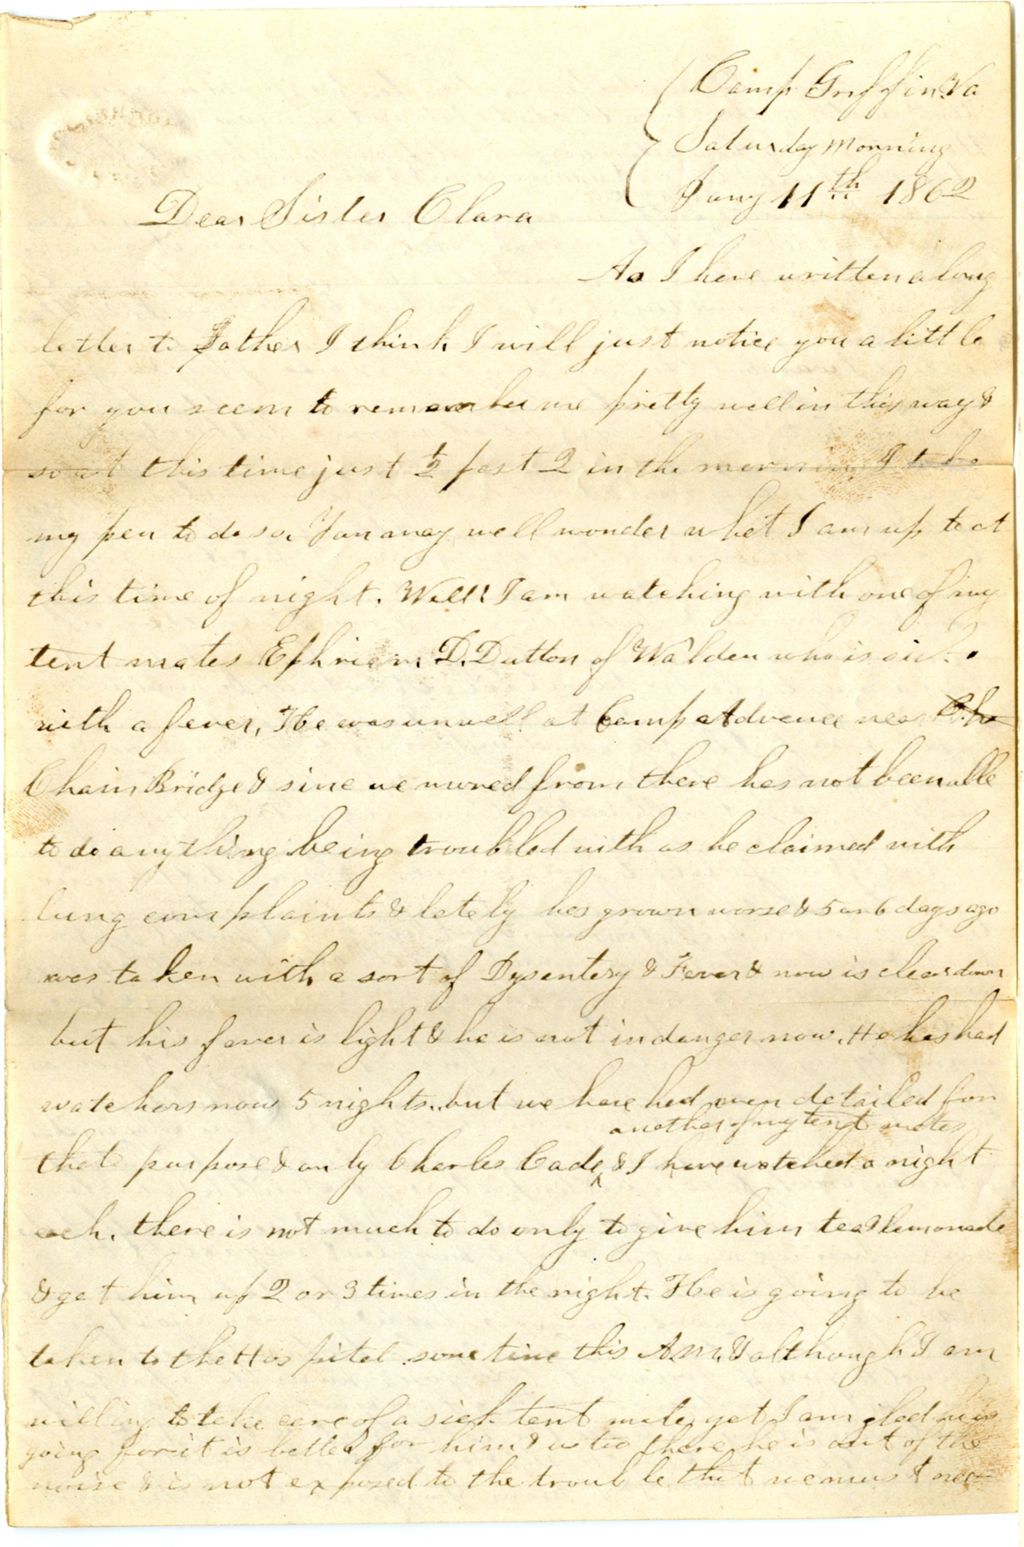 Camp Griffin Va
Saturday Morning
Jany 11th 1862
Dear Sister Clara
As I have written a long
letter to Father I think I will just notice you a little
for you seem to remember me pretty well in this way &
so at this time just ½ past 2 in the morning I take
my pen to do so. You may well wonder what I am up to at
this time of night. Well! I am watching with one of my
tent mates Ephriam D. Dutton of Walden who is sick
with a fever, He was unwell at Camp Advance near the
Chain Bridge & sine we moved from there has not been able
to do anything being troubled with as he claimed with
lung complaints & lately has grown worse & 5 or 6 days ago
was taken with a sort of Dysentery & Fever & now is clear down
but his fever is light & he is not in danger now. He has had
watchers now 5 nights. but we have had men detailed for
another of my tent mates
that purpose & only Charles Cade ^ & I have watched a night
each. there is not much to do only to give him tea & lemonade
& get him up 2 or 3 times in the night. He is going to be
taken to the Hospital some time this A.M. & although I am
willing to take care of a sick tent mate, yet I am glad he is
going for it is better for him & us too there he is out of the
noise & is not exposed to the trouble that we must